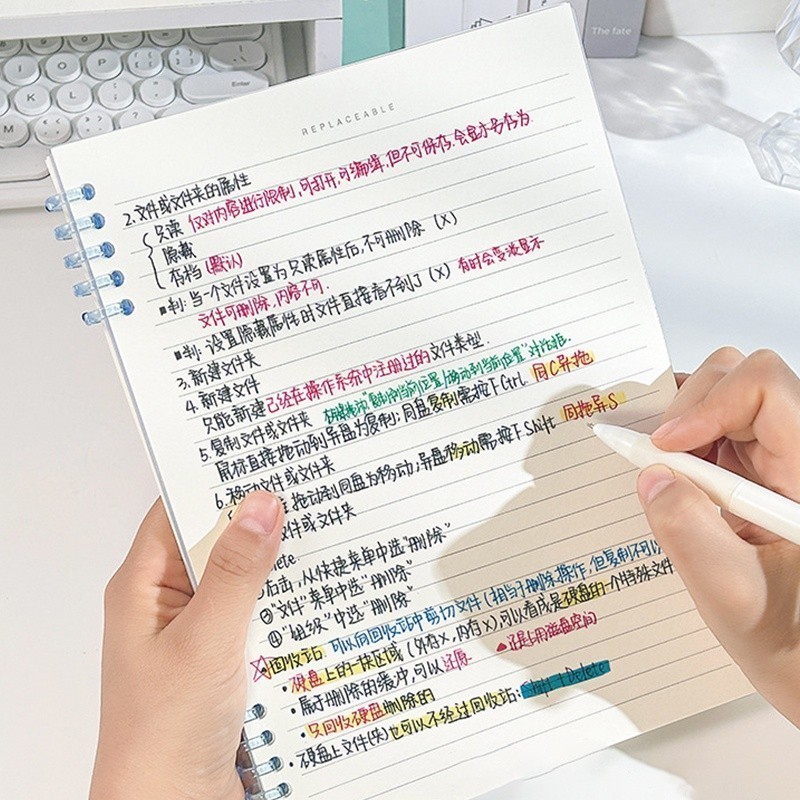 The fate
REPLACEABLE
2.文件或文件夹的属性
只读 仅对内容进行限制,可打开,可编辑,但不可保存,会显示另存为
隐藏
存档(默认)
■判:当一个文件设置为只读属性后,不可删除 (X)
文件可删除,内容不可.
■判:设置隐藏属性的文件直接看不到了 (X) 有时会变淡显示
3.新建文件夹
4.新建文件
只能新建已经在操作系统中注册过的文件类型.
5.复制文件或文件夹 "复制到当前位置/移动到当前位置"对话框.
鼠标直接拖动到异盘为复制;同盘复制需按下Ctrl. 同C异拖
6.移动文件或文件夹
拖动到同盘为移动;异盘移动需按下Shift 同拖异S
文件或文件夹
右击,从快捷菜单中选"删除"
③"文件"菜单中选"删除"
④"组织"中选"删除"
回收站: 可以向回收站中剪切文件(相当于删除操作,但复制不可以
•硬盘上的一块区域(外存X,内存X),可以看成是硬盘的一个特殊文件
•属于删除的缓冲,可以还原 ▲还是占用磁盘空间
•只回收硬盘删除的
•硬盘上文件(夹)也可以不经过回收站: Shift+Delete